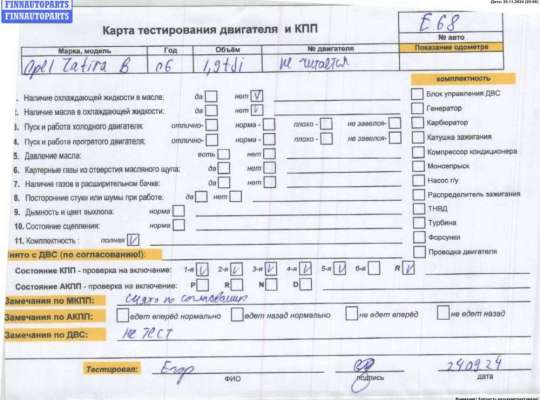 FINNAUTOPARTS
FINNAUTOPARTS
Карта тестирования двигателя и КПП
E 68
№ авто
Марка, модель Год Объём № двигателя Показание одометра
Opel Zafira B 06 1,9tdi не читается
комплектность
1. Наличие охлаждающей жидкости в масле: да нет V
2. Наличие масла в охлаждающей жидкости: да нет V
3. Пуск и работа холодного двигателя: отлично- норма - плохо - не завелся-
4. Пуск и работа прогретого двигателя: отлично- норма - плохо - не завелся-
5. Давление масла: есть нет
6. Картерные газы из отверстия масляного щупа: да нет
7. Наличие газов в расширительном бачке: да нет
8. Посторонние стуки или шумы при работе: да нет
9. Дымность и цвет выхлопа: норма
10. Состояние сцепления: норма
11. Комплектность : полная V
Блок управления ДВС
Генератор
Карбюратор
Катушка зажигания
Компрессор кондиционера
Моновпрыск
Насос г/у
Распределитель зажигания
ТНВД
Турбина
Форсунки
Проводка двигателя
нято с ДВС (по согласованию!):
Состояние КПП - проверка на включение: 1-я V 2-я V 3-я V 4-я V 5-я V 6-я R V
Состояние АКПП - проверка на включение: P R N D
Замечания по МКПП: снято по согласованию
Замечания по АКПП: едет вперед нормально едет назад нормально не едет вперёд не едет назад
Замечания по ДВС: не тест
Тестировал: Егор 24.09.24
ФИО подпись дата